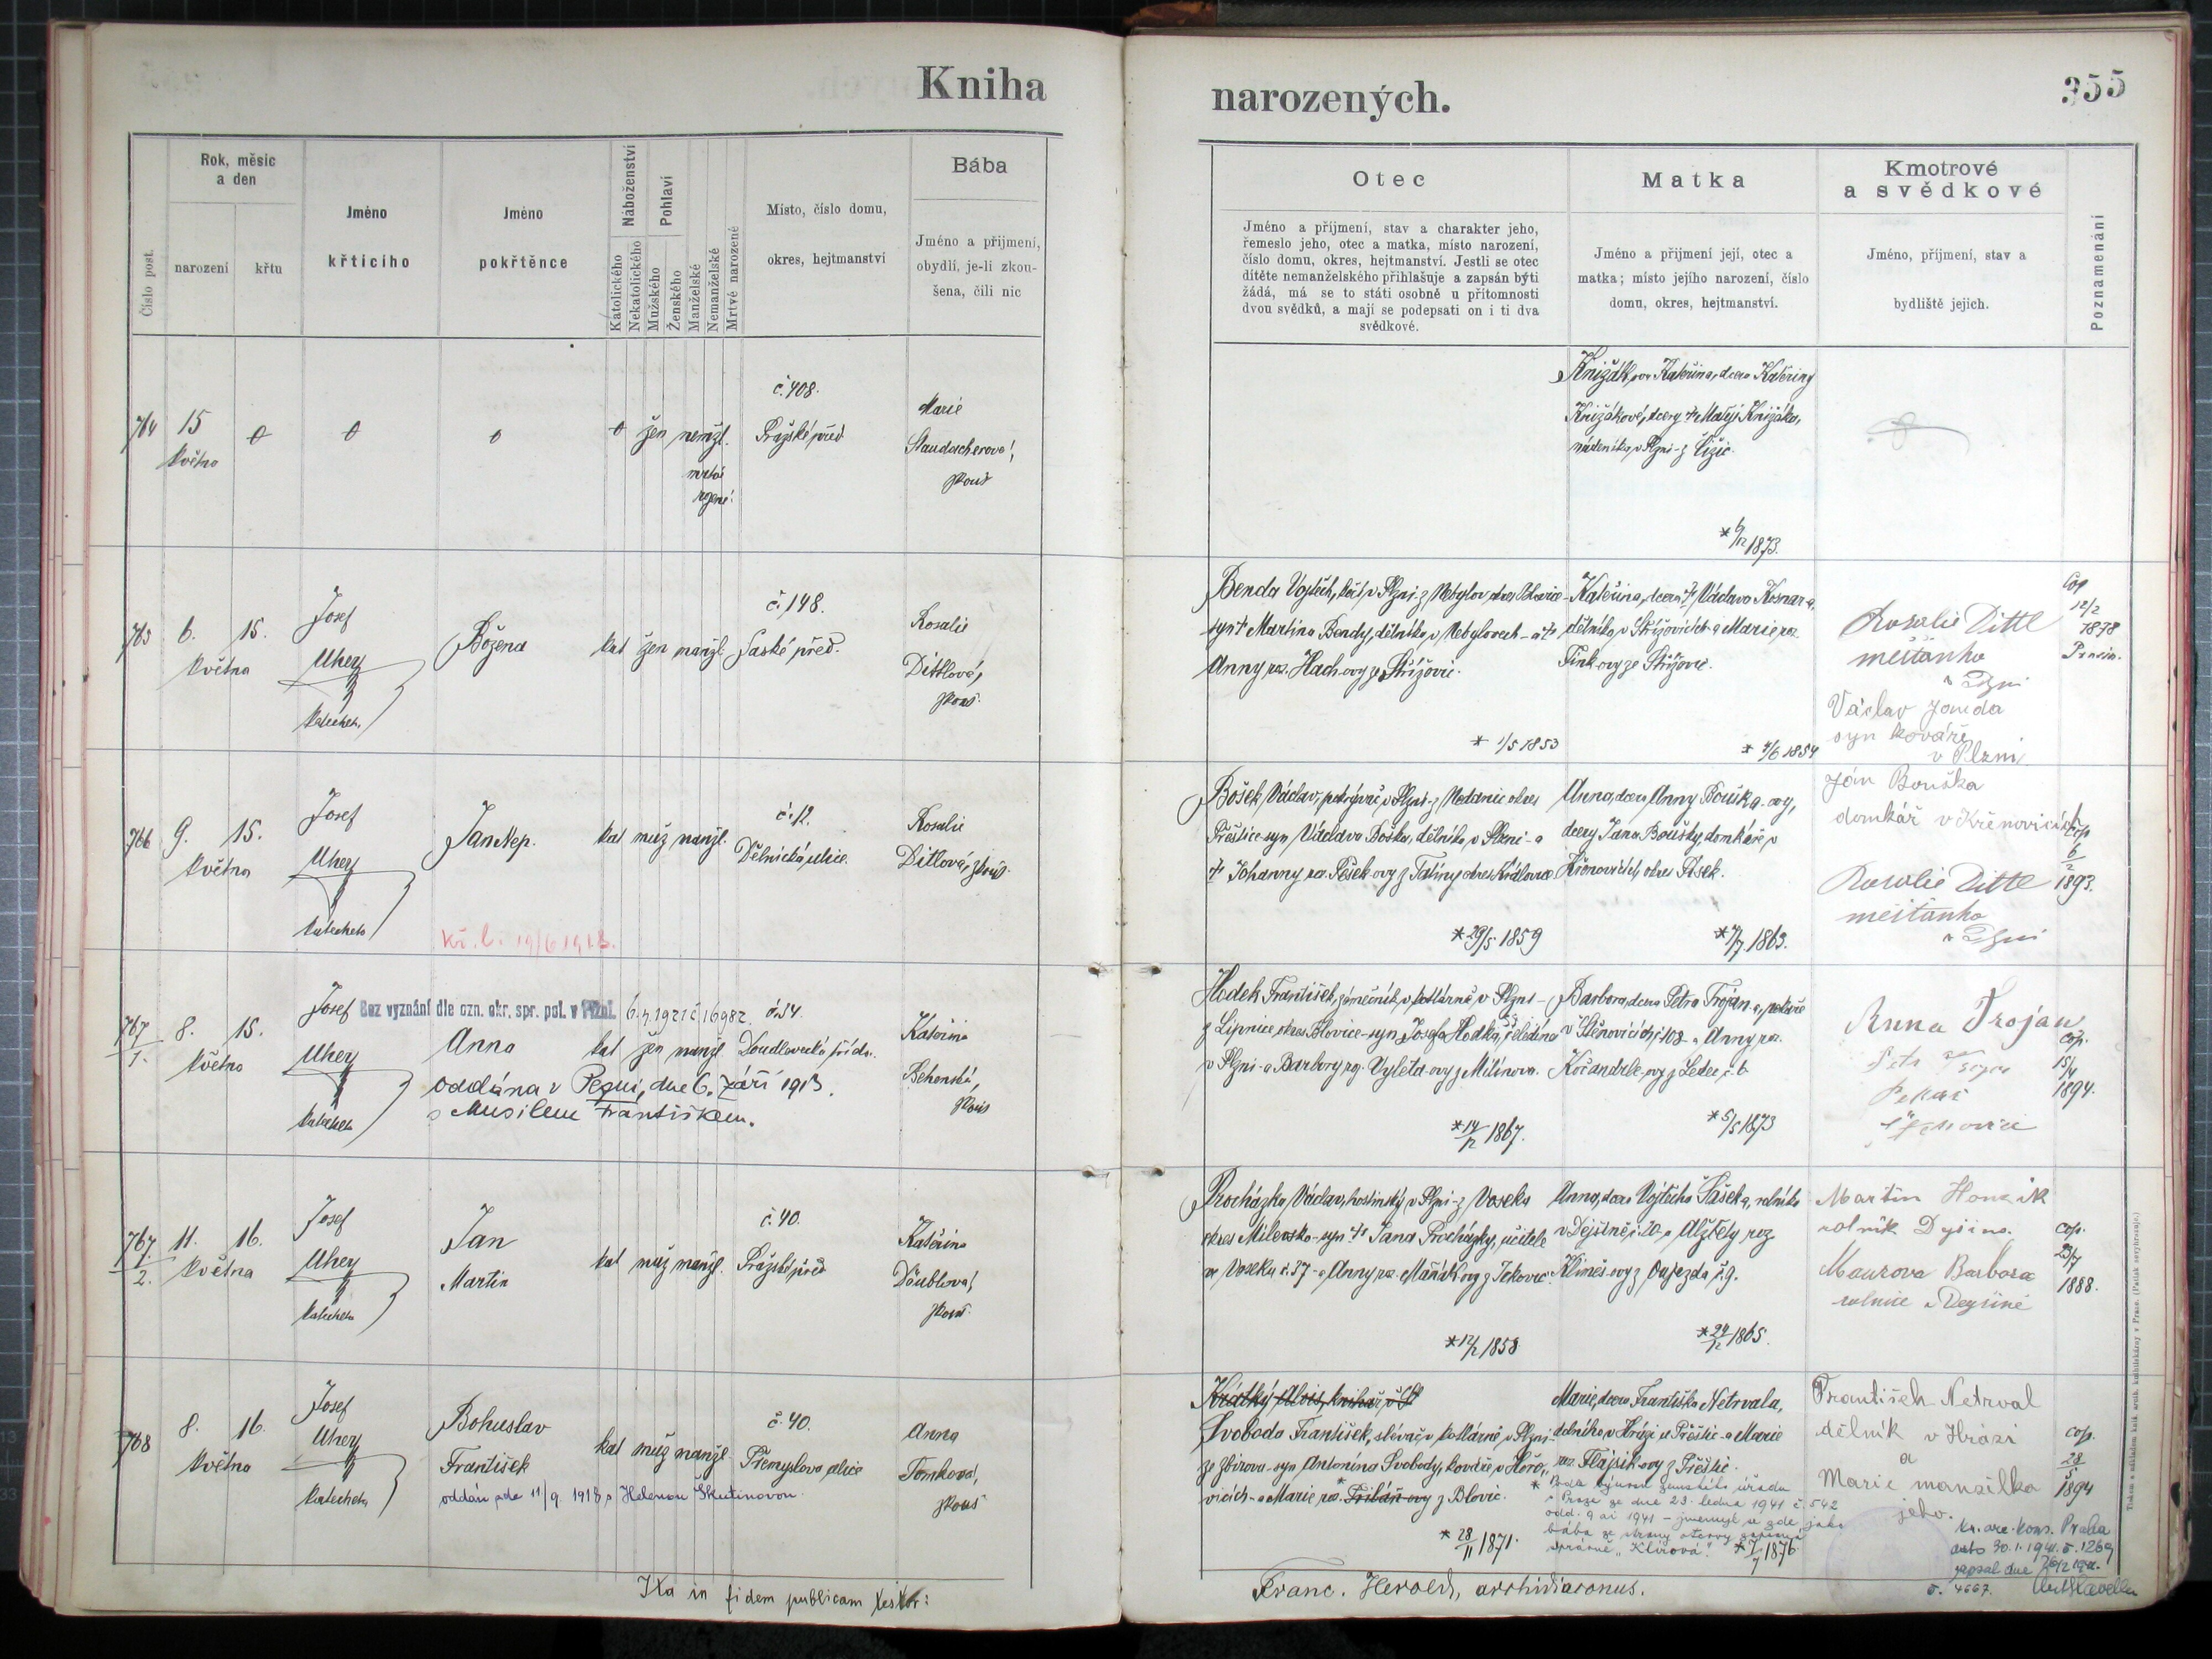 Kniha
narozených.
355
Číslo post.
Rok, měsíc
a den
narození
křtu
Jméno
křtícího
Jméno
pokřtěnce
Náboženství
Katolického
Nekatolického
Pohlaví
Mužského
Ženského
Manželské
Nemanželské
Mrtvě narozené
Místo, číslo domu,
okres, hejtmanství
Bába
Jméno a příjmení,
obydlí, je-li zkou-
šena, čili nic
Otec
Jméno a příjmení, stav a charakter jeho,
řemeslo jeho, otec a matka, místo narození,
číslo domu, okres, hejtmanství. Jestli se otec
dítěte nemanželského přihlašuje a zapsán býti
žádá, má se to státi osobně u přítomnosti
dvou svědků, a mají se podepsati on i ti dva
svědkové.
Matka
Jméno a přijmení její, otec a
matka; místo jejího narození, číslo
domu, okres, hejtmanství.
Kmotrové
a svědkové
Jméno, příjmení, stav a
bydliště jejich.
Poznamenání
764
15
května
žen nemžl.
č. 408.
Pražské před.
Marie
Staudacherová,
zkouš
Knižák Kateřina, dcera Kateřiny
Knižákové, dcery Matěje Knižáka,
nádeníka v Plzni - z Čižic.
* 6/12 1873.
765
6. 15.
května
Josef
Uhey
katecheta
Božena
kat žen manžl.
č. 148.
Saské před.
Rosalie
Dittlová,
zkouš.
Benda Vojtěch, v Plzni - z Nebylov okres Blovice -
syn † Martina Bendy, dělníka v Nebylovech - a †
Anny roz. Hach-ovy ze Střížovic.
* 1/5 1853
Kateřina, dcera † Václava Kosnar-a,
dělníka v Střížovicích a Marie roz.
Fink-ovy ze Střížovic.
* 4/6 1854
Rosalie Dittl
měšťanka
v Plzni
Václav Jonda
syn kováře
v Plzni
Cop
12/2
1878
766
9. 15.
května
Josef
Uhey
katecheta
Jan Nep.
kat muž manžl.
č. 12.
Dělnická ulice.
Rosalie
Ditlová, zkouš.
Bošek Václav, pokrývač v Plzni - z Nedanic okres
Přeštice - syn Václava Boška, dělníka v Plzni - a
† Johanny roz. Pešek-ovy z Tatiny okres Kralovice
* 29/5 1859
Anna, dcera Anny Bouška-ovy,
dcery Jana Boušky, domkáře v
Křenovicích, okres Písek.
* 7/7 1863.
Ján Bouška
domkář v Křenovicích
Rosalie Dittl
měšťanka
v Plzni
Cop
6/2
1893.
Kř. l. 19/6 1913.
767/1.
8. 15.
května
Josef
Uhey
katecheta
Bez vyznání dle ozn. okr. spr. pol. v Plzni. 6.4.1921 č 16982.
Anna
kat žen manžl.
č. 54.
Doudlevecká třída.
oddána v Plzni, dne 6. září 1913.
s Musilem Františkem.
Kateřina
Behenská,
zkouš
Hodek František, zámečník v kotlárně v Plzni -
z Lipnice okres Blovice - syn Josefa Hodka, čeledína
v Plzni - a Barbory roz. Vyleta-ovy z Milínova.
* 14/12 1867.
Barbora, dcera Petra Trojan-a, pekaře
v Štěnovicích č. 108 - a Anny roz.
Kočandrle-ovy z Ledec, č. 6
* 5/5 1873
Anna Trojan
Petr Trojan
Pekař
Cop.
15/4
1894.
767/2.
11. 16.
května
Josef
Uhey
katecheta
Jan
Martin
kat muž manžl.
č. 40.
Pražské před
Kateřina
Doublová,
zkouš.
Procházka Václav, hostinský v Plzni - z Voseka
okres Milevsko - syn † Jana Procházky, učitele
ve Voseku č. 37 - a Anny roz. Maňák-ovy z Jekovic.
* 12/2 1858
Anna, dcera Vojtěcha Šašek-a, rolníka
v Dejšině č. 20 - a Alžběty roz.
Klimeš-ovy z Oujezda č. 9.
* 24/12 1865.
Martin Honzik
rolník Dyšina.
Maurova Barbora
rolnice v Dejšině
cop.
23/7
1888.
768
8. 16.
května
Josef
Uhey
katecheta
Bohuslav
František
kat muž manžl.
č. 40.
Přemyslova ulice
oddán zde 11/9. 1918 s Helenou Skutinovou
Anna
Tomková,
zkouš
Krátký Alois, knihař v
Svoboda František, slévač v kotlárně v Plzni -
ze Zbirova - syn Antonína Svobody, kováře v Hořo-
vicích - a Marie roz. Triláň-ovy z Blovic.
* 28/11 1871.
Marie, dcera Františka Netrvala,
dělníka v Hrázi u Přeštic - a Marie
roz. Flajšik-ovy z Přeštic.
* Podle výnosu zemského úřadu
v Praze ze dne 23. ledna 1941 č. 542
odd. 9 ai 1941 - jmenuje se zde jako
bába ze strany otcovy zapsaná
správně "Klírová".
* 7/7 1876
František Netrval
dělník v Hrázi
a
Marie manželka
jeho.
cop.
28/5
1894
kn. arc. kons. Praha
dato 30.1.1941 č. 1269
zapsal dne
č. 4667.
Ita in fidem publicam testor:
Franc. Herold, archidiaconus.